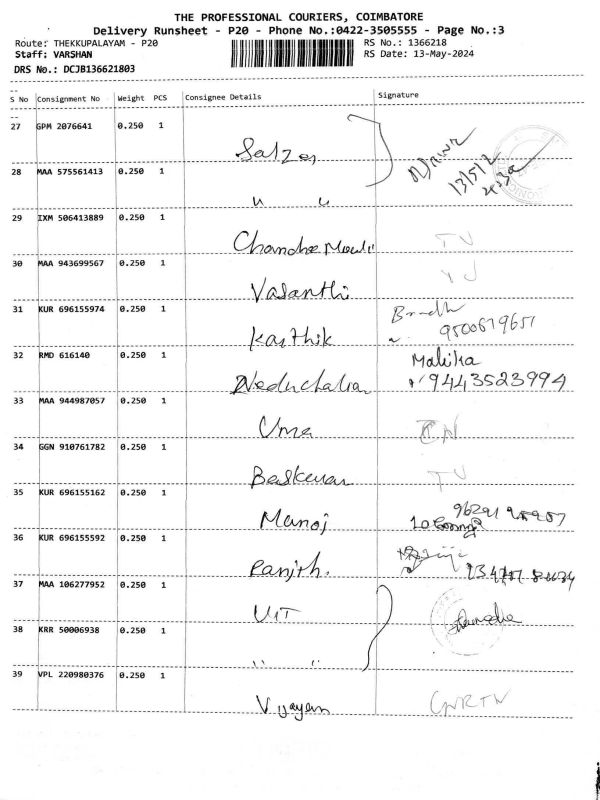 THE PROFESSIONAL COURIERS, COIMBATORE
Delivery Runsheet - P20 - Phone No.:0422-3505555 - Page No.:3
Route: THEKKUPALAYAM - P20 RS No.: 1366218
Staff: VARSHAN RS Date: 13-May-2024
DRS No.: DCJB136621803
S No Consignment No Weight PCS Consignee Details Signature
27 GPM 2076641 0.250 1 Salzer
28 MAA 575561413 0.250 1 " "
13/5/2
29 IXM 506413889 0.250 1 Chandra Mouli
30 MAA 943699567 0.250 1 Vasanthi
31 KUR 696155974 0.250 1 Karthik 9500679651
32 RMD 616140 0.250 1 Neduchalian Malika
9443523994
33 MAA 944987057 0.250 1 Uma
34 GGN 910761782 0.250 1 Baskeran
35 KUR 696155162 0.250 1 Manoj
36 KUR 696155592 0.250 1 Ranjith.
37 MAA 106277952 0.250 1 UIT
38 KRR 50006938 0.250 1 " "
39 VPL 220980376 0.250 1 Vijayan